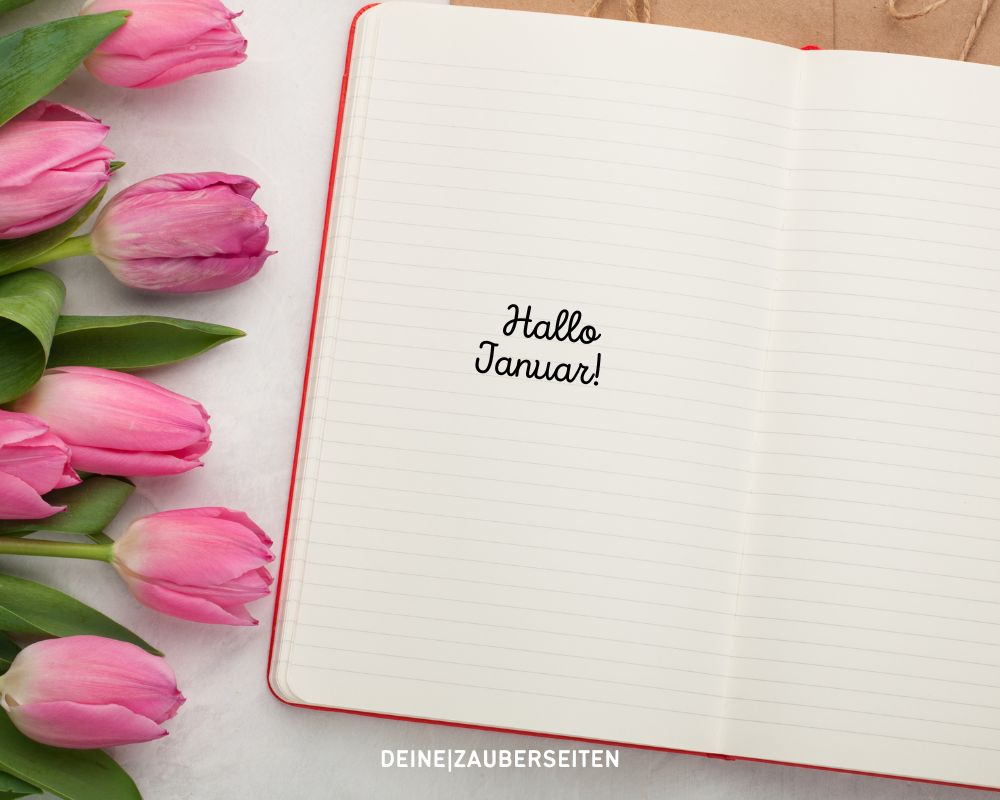 Hallo
Januar!
DEINE|ZAUBERSEITEN